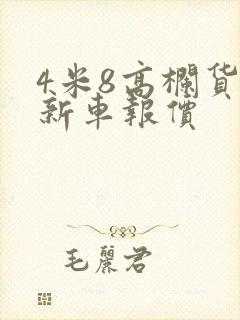 4米8高欄货
新車報價
毛麗君